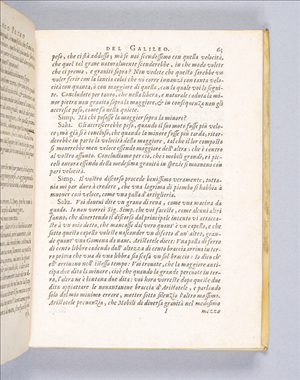 DEL GALILEO. 65
peso, che ci stà addosso; mà se noi scendessimo con quella velocità,
che quel tal grave naturalmente scenderebbe, in che modo volete
che ci prema, e graviti sopra? Non vedete che questo sarebbe un
voler ferir con la lancia colui che vi corre innanzi con tanta velo-
cità con quanta, ò con maggiore di quella, con la quale voi lo segui-
te. Concludete per tanto, che nella libera, e naturale caduta la mi-
nor pietra non gravita sopra la maggiore, & in consequenza non gli
accresce peso, come fà nella quiete.
Simp. Mà chi posasse la maggior sopra la minore?
Salu. Gli accrescerebbe peso, quando il suo moto fusse più velo-
ce; mà già si è concluso, che quando la minore fusse più tarda, ritar-
derebbe in parte la velocità della maggiore, tal che il lor composto
si moverebbe men veloce essendo maggiore dell'altra: che è contro
al vostro assunto. Concludiamo per ciò, che i mobili grandi, e i pic-
coli ancora essendo della medesima gravità in spezie si muovono con
pari velocità.
Simp. Il vostro discorso procede benissimo veramente, tutta-
via mi par duro à credere, che una lagrima di piombo si habbia à
muover così veloce, come una palla d'artiglieria.
Salu. Voi dovevi dire un grano di rena, come una macina da
guado. Io non vorrei Sig. Simp. che voi faceste, come alcuni altri
fanno, che divertendo il discorso dal principale intento vi attacca-
ste à un mio detto, che mancasse dal vero quant'è un capello, e che
sotto questo capello voleste nasconder un difetto d'un'altro, gran-
de quant'una Gomona da nave. Aristotele dice: Una palla di ferro
di cento libbre cadendo dall'altezza di cento braccia arriva in ter-
ra prima che una di una libbra sia scesa un sol braccio: io dico ch'
ell'arrivano nell'istesso tempo: Voi trovate, che la maggiore anti-
cipa due dita la minore, cioè che quando la grande percuote in ter-
ra, l'altra ne è lontana due dita: voi hora vorreste dopo queste due
dita appiattare le novantanove braccia d'Aristotele, e parlando
solo del mio minimo errore, metter sotto silenzio l'altro massimo.
Aristotele pronunzia, che Mobili di diversa gravità nel medesimo
I mezzo